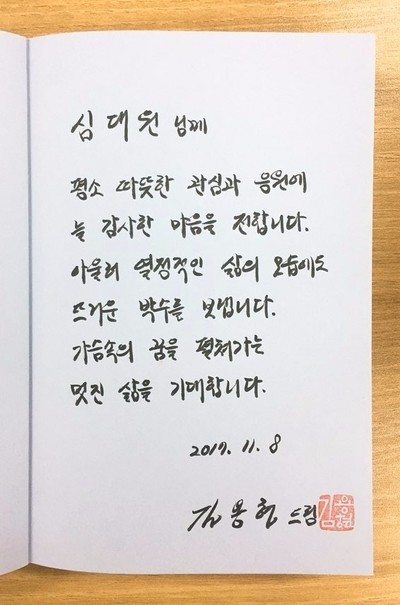 심대원 님께
평소 따뜻한 관심과 응원에
늘 감사한 마음을 전합니다.
아울러 열정적인 삶의 모습에도
뜨거운 박수를 보냅니다.
가슴속의 꿈을 펼쳐가는
멋진 삶을 기대합니다.
2017. 11. 8
드림